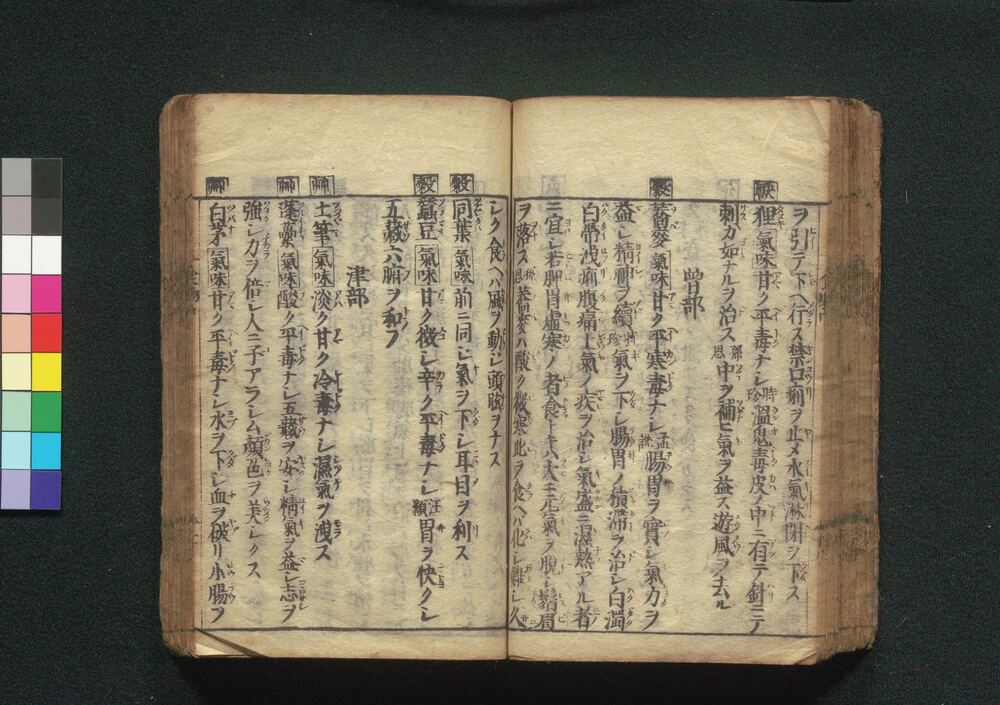 ヲ引テ下ヘ行ス禁口痢ヲ止メ水氣淋閉ヲ下ス
獣 狸 氣味 甘ク平毒ナシ 時珍 溫鬼毒皮中ニ有テ針ニテ
刺カ如ナルヲ治ス 孫思 中ヲ補ヒ氣ヲ益ス遊風ヲ去ル
曾部
穀 蕎麥 氣味 甘ク平寒毒ナシ 孟詵 腸胃ヲ實シ氣力ヲ
益シ精神ヲ續 時珍 氣ヲ下シ腸胃ノ積滞ヲ治シ白濁
白帶洩痢腹痛上氣ノ疾ヲ治シ氣盛ニ濕熱アル者
ニ宜シ若脾胃虛寒ノ者食トキハ大ニ元氣ヲ脫シ鬚眉
ヲ落ス 思 蕎麥ハ酸ク微寒此ヲ食ヘハ化シ難シ久
シク食ヘハ風ヲ動シ頭眩ヲナス
穀 同葉 氣味 前ニ同シ氣ヲ下シ耳目ヲ利ス
穀 蠶豆 氣味 甘ク微シ辛ク平毒ナシ 汪頴 胃ヲ快クシ
五藏六腑ヲ和フ
津部
艸 土筆 氣味 淡ク甘ク冷毒ナシ濕氣ヲ洩ス
艸 蓬虆 氣味 酸ク平毒ナシ五藏ヲ安シ精氣ヲ益シ志ヲ
強シ力ヲ倍シ人ニ子アラシム顔色ヲ美シクス
艸 白茅 氣味 甘ク平毒ナシ水ヲ下シ血ヲ破リ小腸ヲ